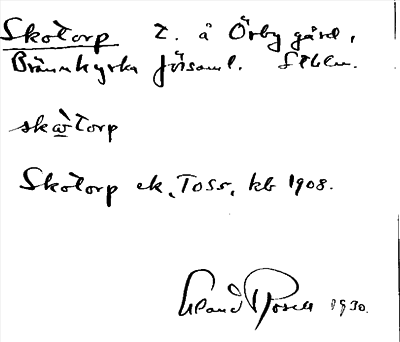 Skotorp t. å Örby gård,
Brännkyrka församl. Sthlm.
skωtorp
Skotorp ek, Toss, kb 1908.
1930.